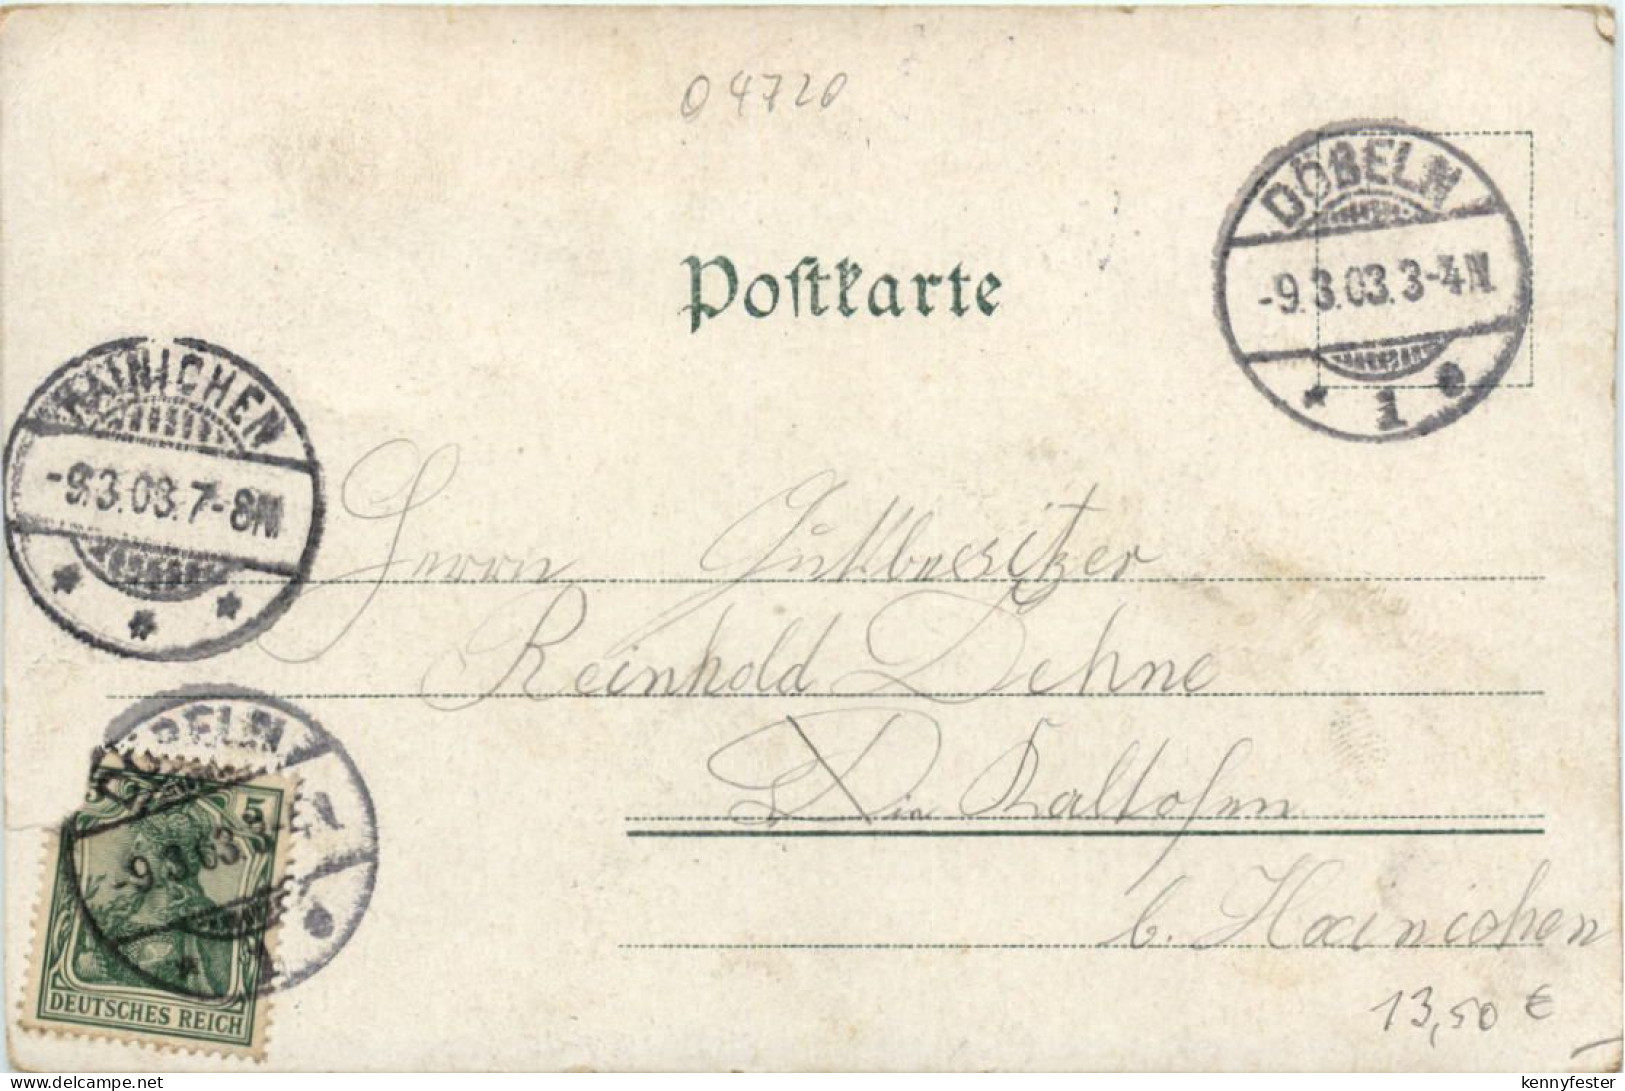 04720
DÖBELN
-9.3.03.3-4N.
1
Postkarte
HAINICHEN
-9.3.03.7-8N.
Herrn Gutsbesitzer
Reinhold Dehne
in Kaltofen
b. Hainichen
DÖBELN
-9.3.03.3-4N
1
5 5
DEUTSCHES REICH
13,50 €
www.delcampe.net
kennyfester